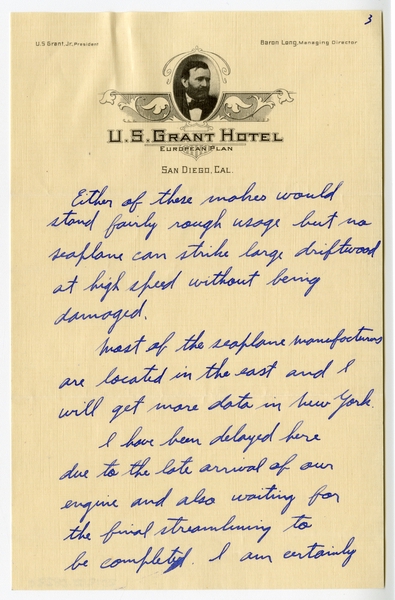 3
U.S. Grant, Jr. President
Baron Long, Managing Director
U.S. GRANT HOTEL
EUROPEAN PLAN
SAN DIEGO, CAL.
Either of these makes would
stand fairly rough usage but no
seaplane can strike large driftwood
at high speed without being
damaged.
Most of the seaplane manufacturers
are located in the east and I
will get more data in New York.
I have been delayed here
due to the late arrival of our
engine and also waiting for
the final streamlining to
be completed. I am certainly